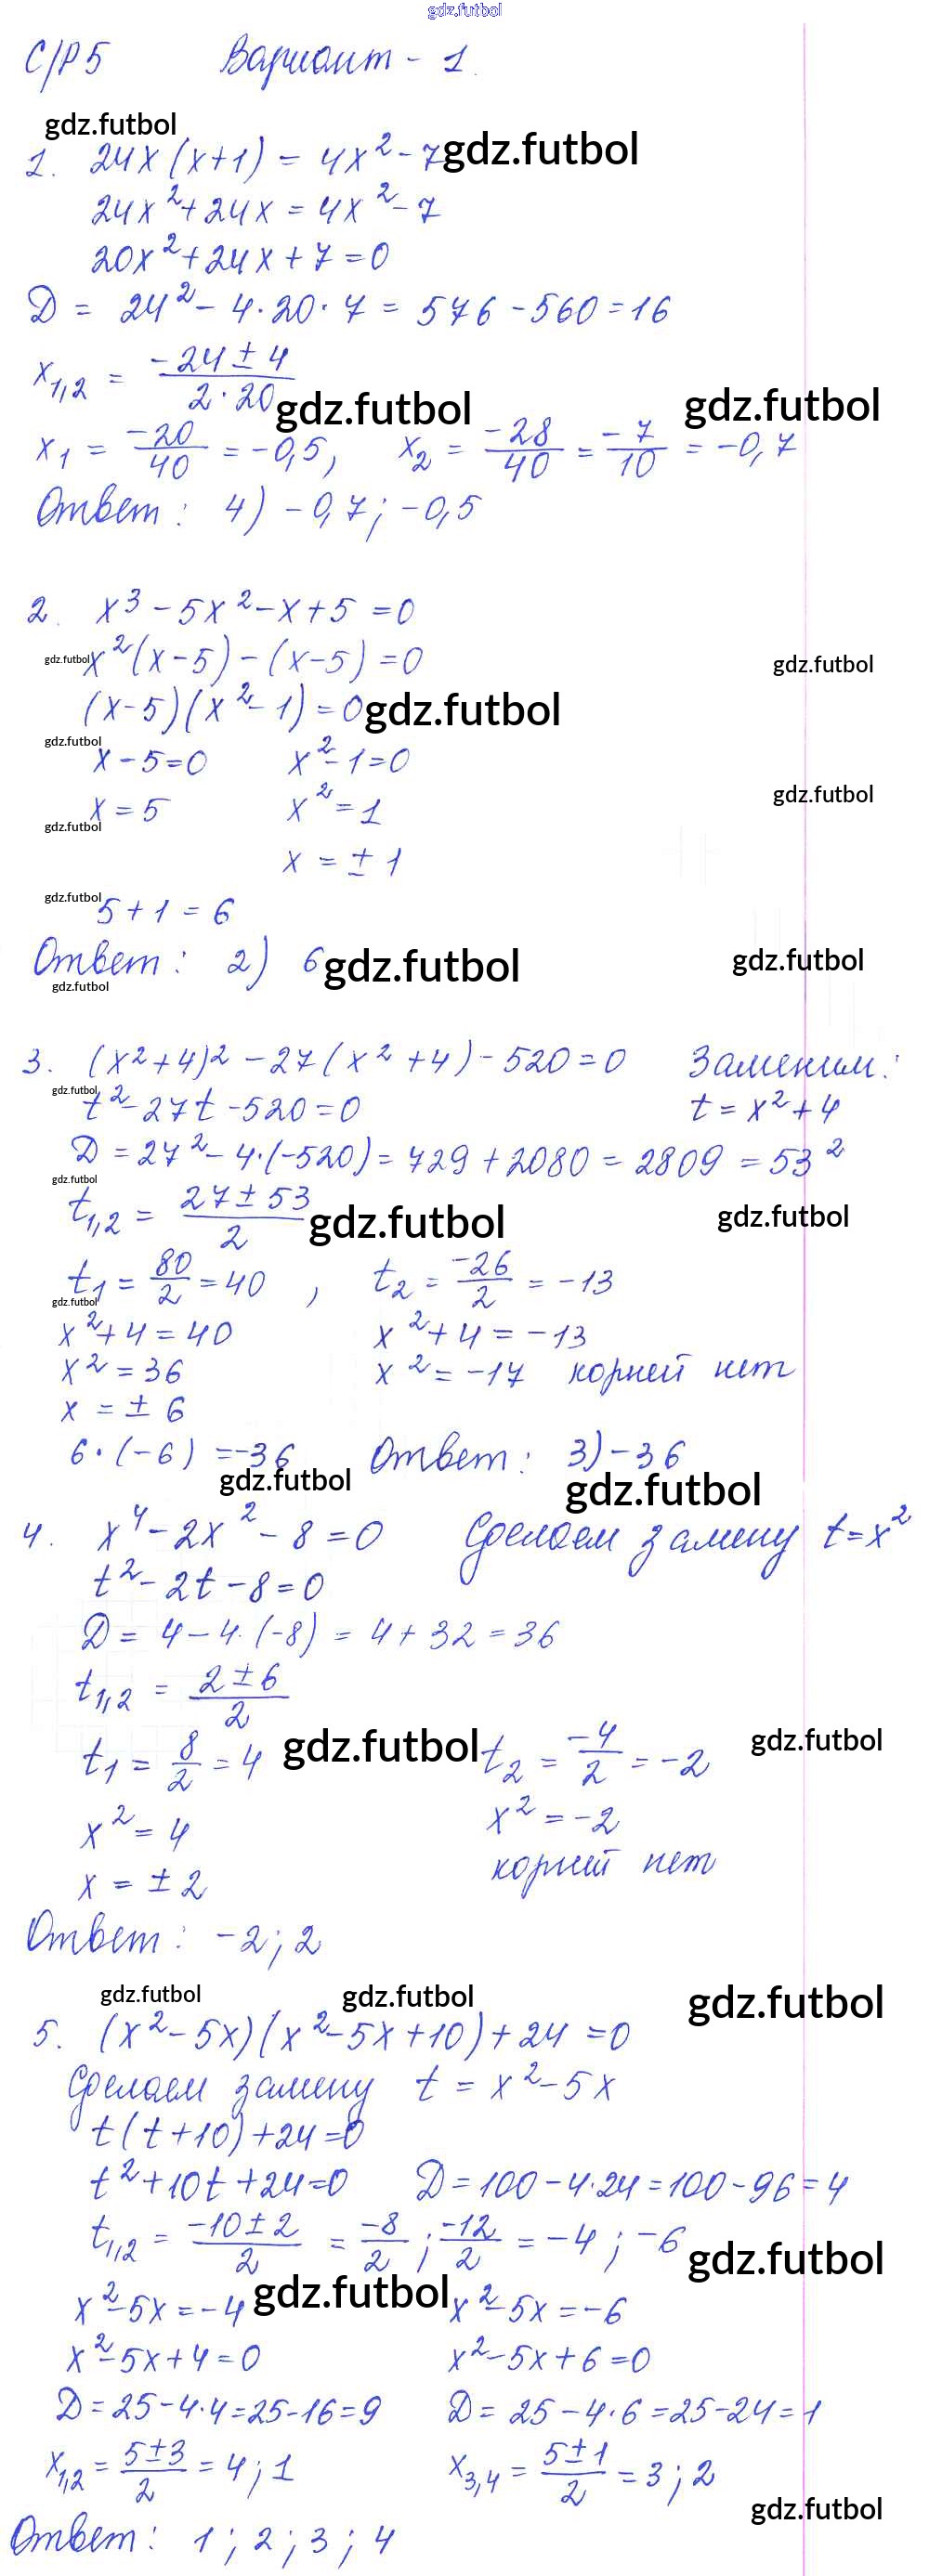 gdz.futbol
С/Р 5 Вариант - 1.
gdz.futbol
1. 24x(x+1) = 4x² - 7 gdz.futbol
24x² + 24x = 4x² - 7
20x² + 24x + 7 = 0
D = 24² - 4·20·7 = 576 - 560 = 16
x₁,₂ = (-24 ± 4)/(2·20) gdz.futbol gdz.futbol
x₁ = -20/40 = -0,5, x₂ = -28/40 = -7/10 = -0,7
Ответ: 4) -0,7; -0,5
2. x³ - 5x² - x + 5 = 0
gdz.futbol x²(x-5) - (x-5) = 0 gdz.futbol
(x-5)(x²-1) = 0 gdz.futbol
gdz.futbol
x - 5 = 0 x² - 1 = 0
gdz.futbol
x = 5 x² = 1
gdz.futbol
x = ± 1
gdz.futbol
5 + 1 = 6
Ответ: 2) 6 gdz.futbol gdz.futbol
gdz.futbol
3. (x²+4)² - 27(x²+4) - 520 = 0 Заменим:
gdz.futbol
t² - 27t - 520 = 0 t = x² + 4
D = 27² - 4·(-520) = 729 + 2080 = 2809 = 53²
gdz.futbol
t₁,₂ = (27 ± 53)/2 gdz.futbol gdz.futbol
t₁ = 80/2 = 40, t₂ = -26/2 = -13
gdz.futbol
x² + 4 = 40 x² + 4 = -13
x² = 36 x² = -17 корней нет
x = ± 6
6·(-6) = -36 Ответ: 3) -36
gdz.futbol gdz.futbol
4. x⁴ - 2x² - 8 = 0 Сделаем замену t = x²
t² - 2t - 8 = 0
D = 4 - 4·(-8) = 4 + 32 = 36
t₁,₂ = (2 ± 6)/2
t₁ = 8/2 = 4 gdz.futbol t₂ = -4/2 = -2 gdz.futbol
x² = 4 x² = -2
x = ± 2 корней нет
Ответ: -2; 2
gdz.futbol gdz.futbol gdz.futbol
5. (x² - 5x)(x² - 5x + 10) + 24 = 0
Сделаем замену t = x² - 5x
t(t+10) + 24 = 0
t² + 10t + 24 = 0 D = 100 - 4·24 = 100 - 96 = 4
t₁,₂ = (-10 ± 2)/2 = -8/2; -12/2 = -4; -6 gdz.futbol
x² - 5x = -4 gdz.futbol x² - 5x = -6
x² - 5x + 4 = 0 x² - 5x + 6 = 0
D = 25 - 4·4 = 25 - 16 = 9 D = 25 - 4·6 = 25 - 24 = 1
x₁,₂ = (5 ± 3)/2 = 4; 1 x₃,₄ = (5 ± 1)/2 = 3; 2
gdz.futbol
Ответ: 1; 2; 3; 4